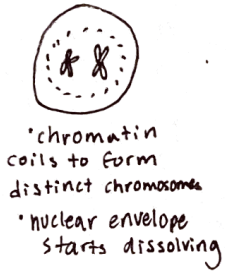 •chromatin
coils to form
distinct chromosomes
•nuclear envelope
starts dissolving